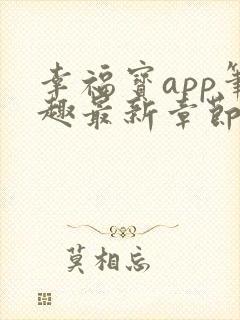 幸福宝app笔
趣最新章节
莫相忘